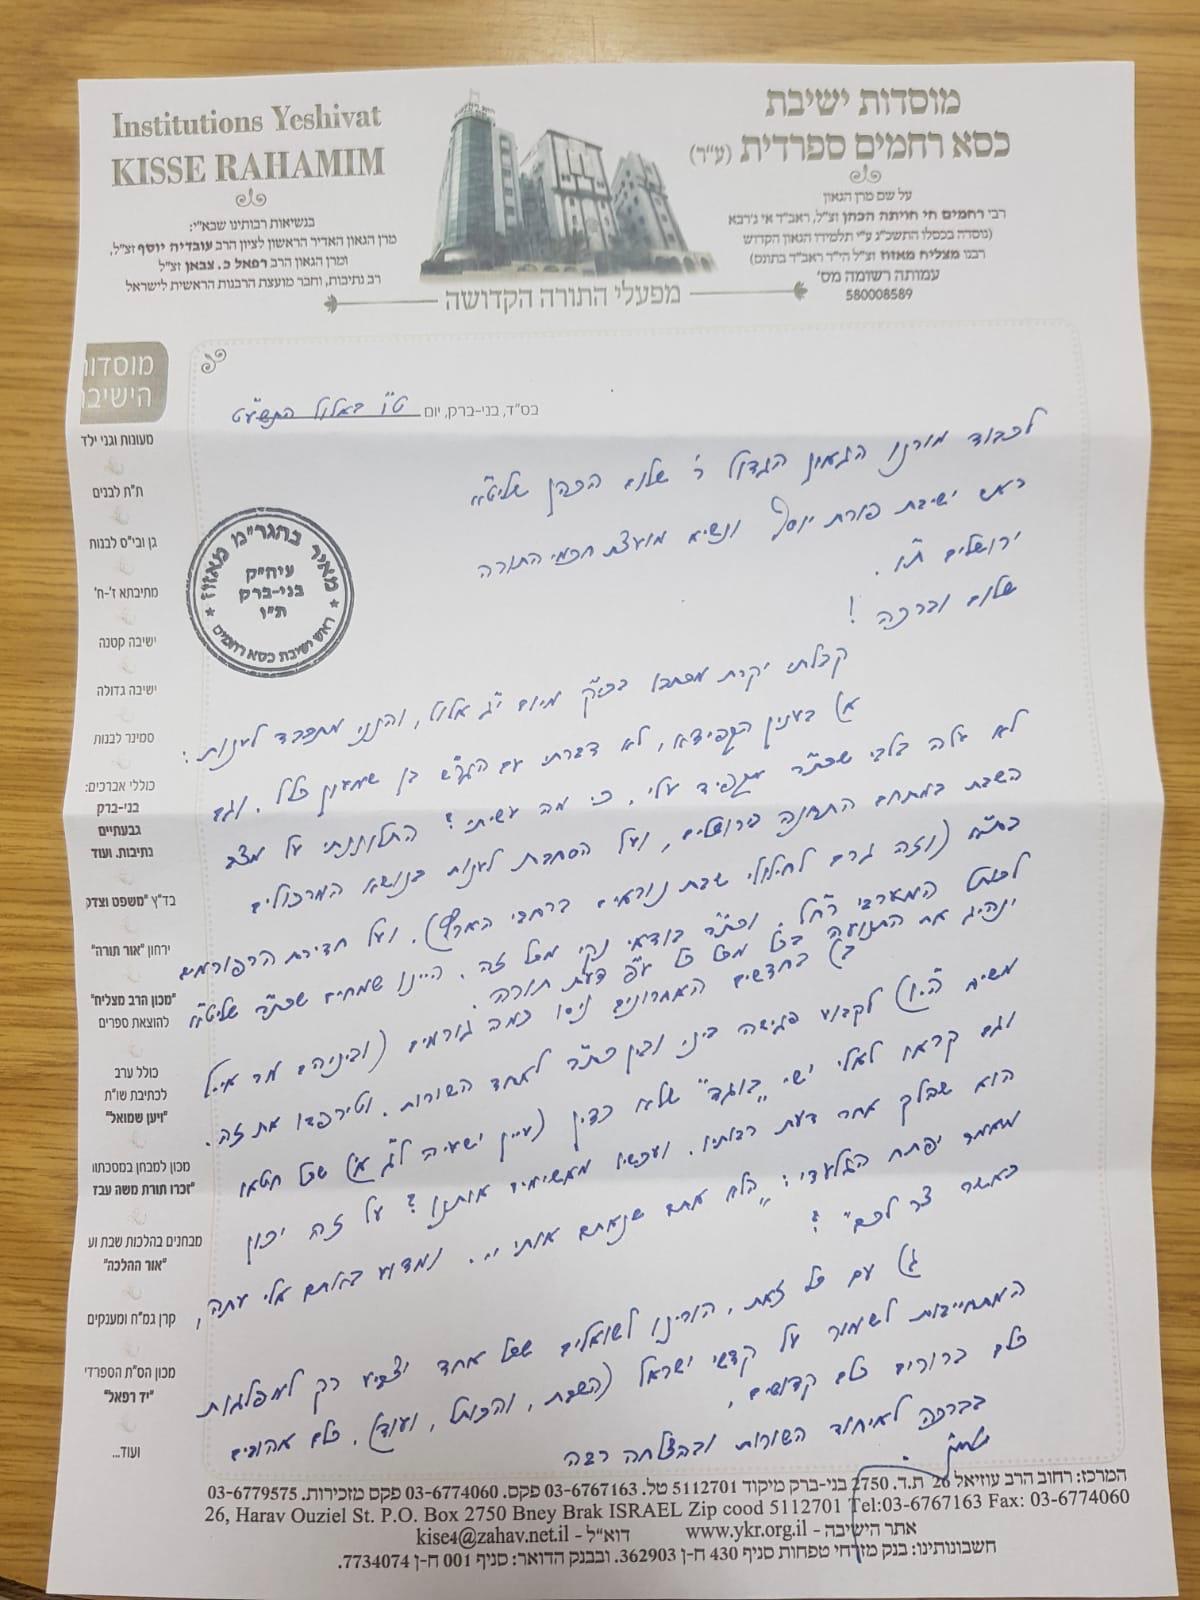 Institutions Yeshivat
KISSE RAHAMIM
בנשיאות רבותינו שבא"י:
מרן הגאון האדיר הראשון לציון הרב עובדיה יוסף זצ"ל,
ומרן הגאון הרב רפאל כ. צבאן זצ"ל
רב נתיבות, וחבר מועצת הרבנות הראשית לישראל
מוסדות ישיבת
כסא רחמים ספרדית (ע"ר)
על שם מרן הגאון
רבי רחמים חי חויתה הכהן זצ"ל, ראב"ד אי ג'רבא
(נוסדה בכסלו התשכ"ג ע"י תלמידו הגאון הקדוש
רבנו מצליח מאזוז זצ"ל הי"ד ראב"ד בתונס)
עמותה רשומה מס'
580008589
מפעלי התורה הקדושה
מוסדות
הישיבה
מעונות וגני ילד
ת"ת לבנים
גן ובי"ס לבנות
מתיבתא ז'-ח'
ישיבה קטנה
ישיבה גדולה
סמינר לבנות
כוללי אברכים:
בני-ברק
גבעתיים
נתיבות. ועוד
בד"ץ "משפט וצדק
ירחון "אור תורה"
"מכון הרב מצליח"
להוצאת ספרים
כולל ערב
לכתיבת שו"ת
"ויען שמואל"
מכון למבחן במסכתו
"זכרו תורת משה עבד
מבחנים בהלכות שבת וע
"אור ההלכה"
קרן גמ"ח ומענקים
מכון הס"ת הספרדי
"יד רפאל"
ועוד...
בס"ד, בני-ברק, יום ט"ו באלול התשע"ט
מאיר בהגר"מ מאזוז
עיה"ק
בני-ברק
ת"ו
ראש ישיבת כסא רחמים
לכבוד מורנו הגאון הגדול ר' שלום הכהן שליט"א
ראש ישיבת פורת יוסף ונשיא מועצת חכמי התורה
ירושלים ת"ו.
שלום וברכה!
קבלתי יקרת מכתבו בכי"ק מיום י"ג אלול, והנני מתכבד לענות:
א) בענין הקפידא, לא דברתי עם הגר"ש בן שמעון כלל. וגם
לא עלה בלבי שכת"ר מקפיד עלי. כי מה עשיתי? התלוננתי על מצב
השבת במתחם התחנה בירושלים, ועל הסחבת לענות בנושא המרכולים
בת"א (וזה גרם לחילולי שבת נוראים ברחבי הארץ). ועל חדירת הרפורמים
לכותל המערבי ר"ל. וכת"ר בודאי נקי מכל זה. היינו שמחים שכת"ר שליט"א
ינהיג את התנועה בכל מכל כל עפ"י דעת תורה.
ב) בחדשים האחרונים ניסו כמה גורמים (וביניהם מר אייל
משיח הי"ו) לקבוע פגישה ביני ובין כת"ר לאחד השורות. וטירפדו את זה.
וגם קראו לאלי ישי "בוגד" שלא כדין (עיין ישעיה ל"ג א) שכל חטאו
הוא שהלך אחר דעת רבותיו. ועכשיו מאשימים אותנו? על זה יכון
מאמר יפתח הגלעדי: "הלא אתם שנאתם אותי וו'. ומדוע באתם אלי עתה,
כאשר צר לכם"?
ג) עם כל זאת, הורינו לשואלים שכל אחד יצביע רק למפלגות
המתחייבות לשמור על קדשי ישראל (השבת, והכותל, ועוד). כלם אהובים
כלם ברורים כלם קדושים,
בברכה לאיחוד השורות ובהצלחה רבה
המרכז: רחוב הרב עוזיאל 26 ת.ד. 2750 בני-ברק מיקוד 5112701 טל. 03-6767163 פקס. 03-6774060 פקס מזכירות. 03-6779575
26, Harav Ouziel St. P.O. Box 2750 Bney Brak ISRAEL Zip cood 5112701 Tel:03-6767163 Fax: 03-6774060
אתר הישיבה - www.ykr.org.il דוא"ל - kise4@zahav.net.il
חשבונותינו: בנק מזרחי טפחות סניף 430 ח-ן 362903. ובבנק הדואר: סניף 001 ח-ן 7734074.